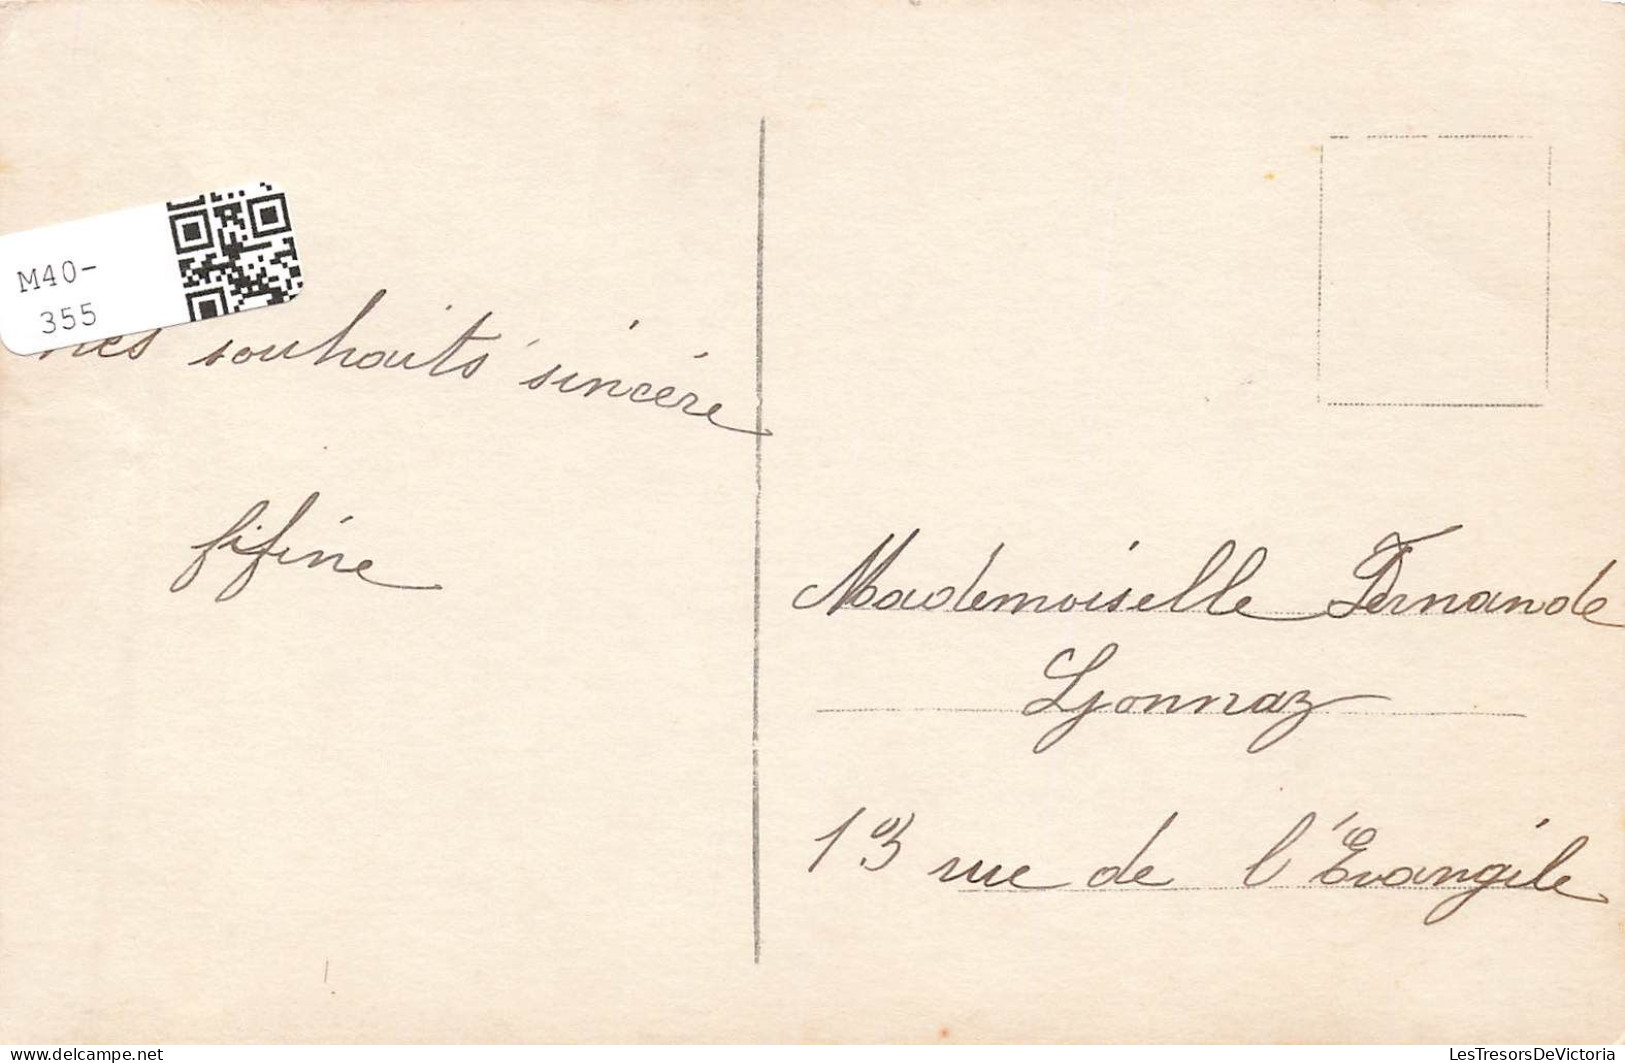 M40-
355
mes souhaits sincère
fifine
Mademoiselle Fernande
Lyonnaz
13 rue de l'Évangile
delcampe.net
LesTresorsDeVictoria